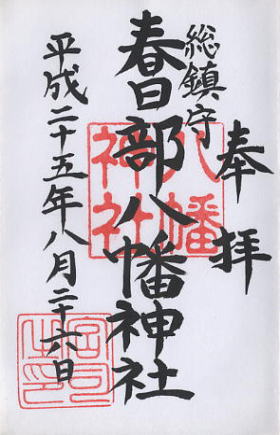 奉拝
総鎮守
春日部八幡神社
平成二十五年八月二十六日
八幡
神社
宮司
之印